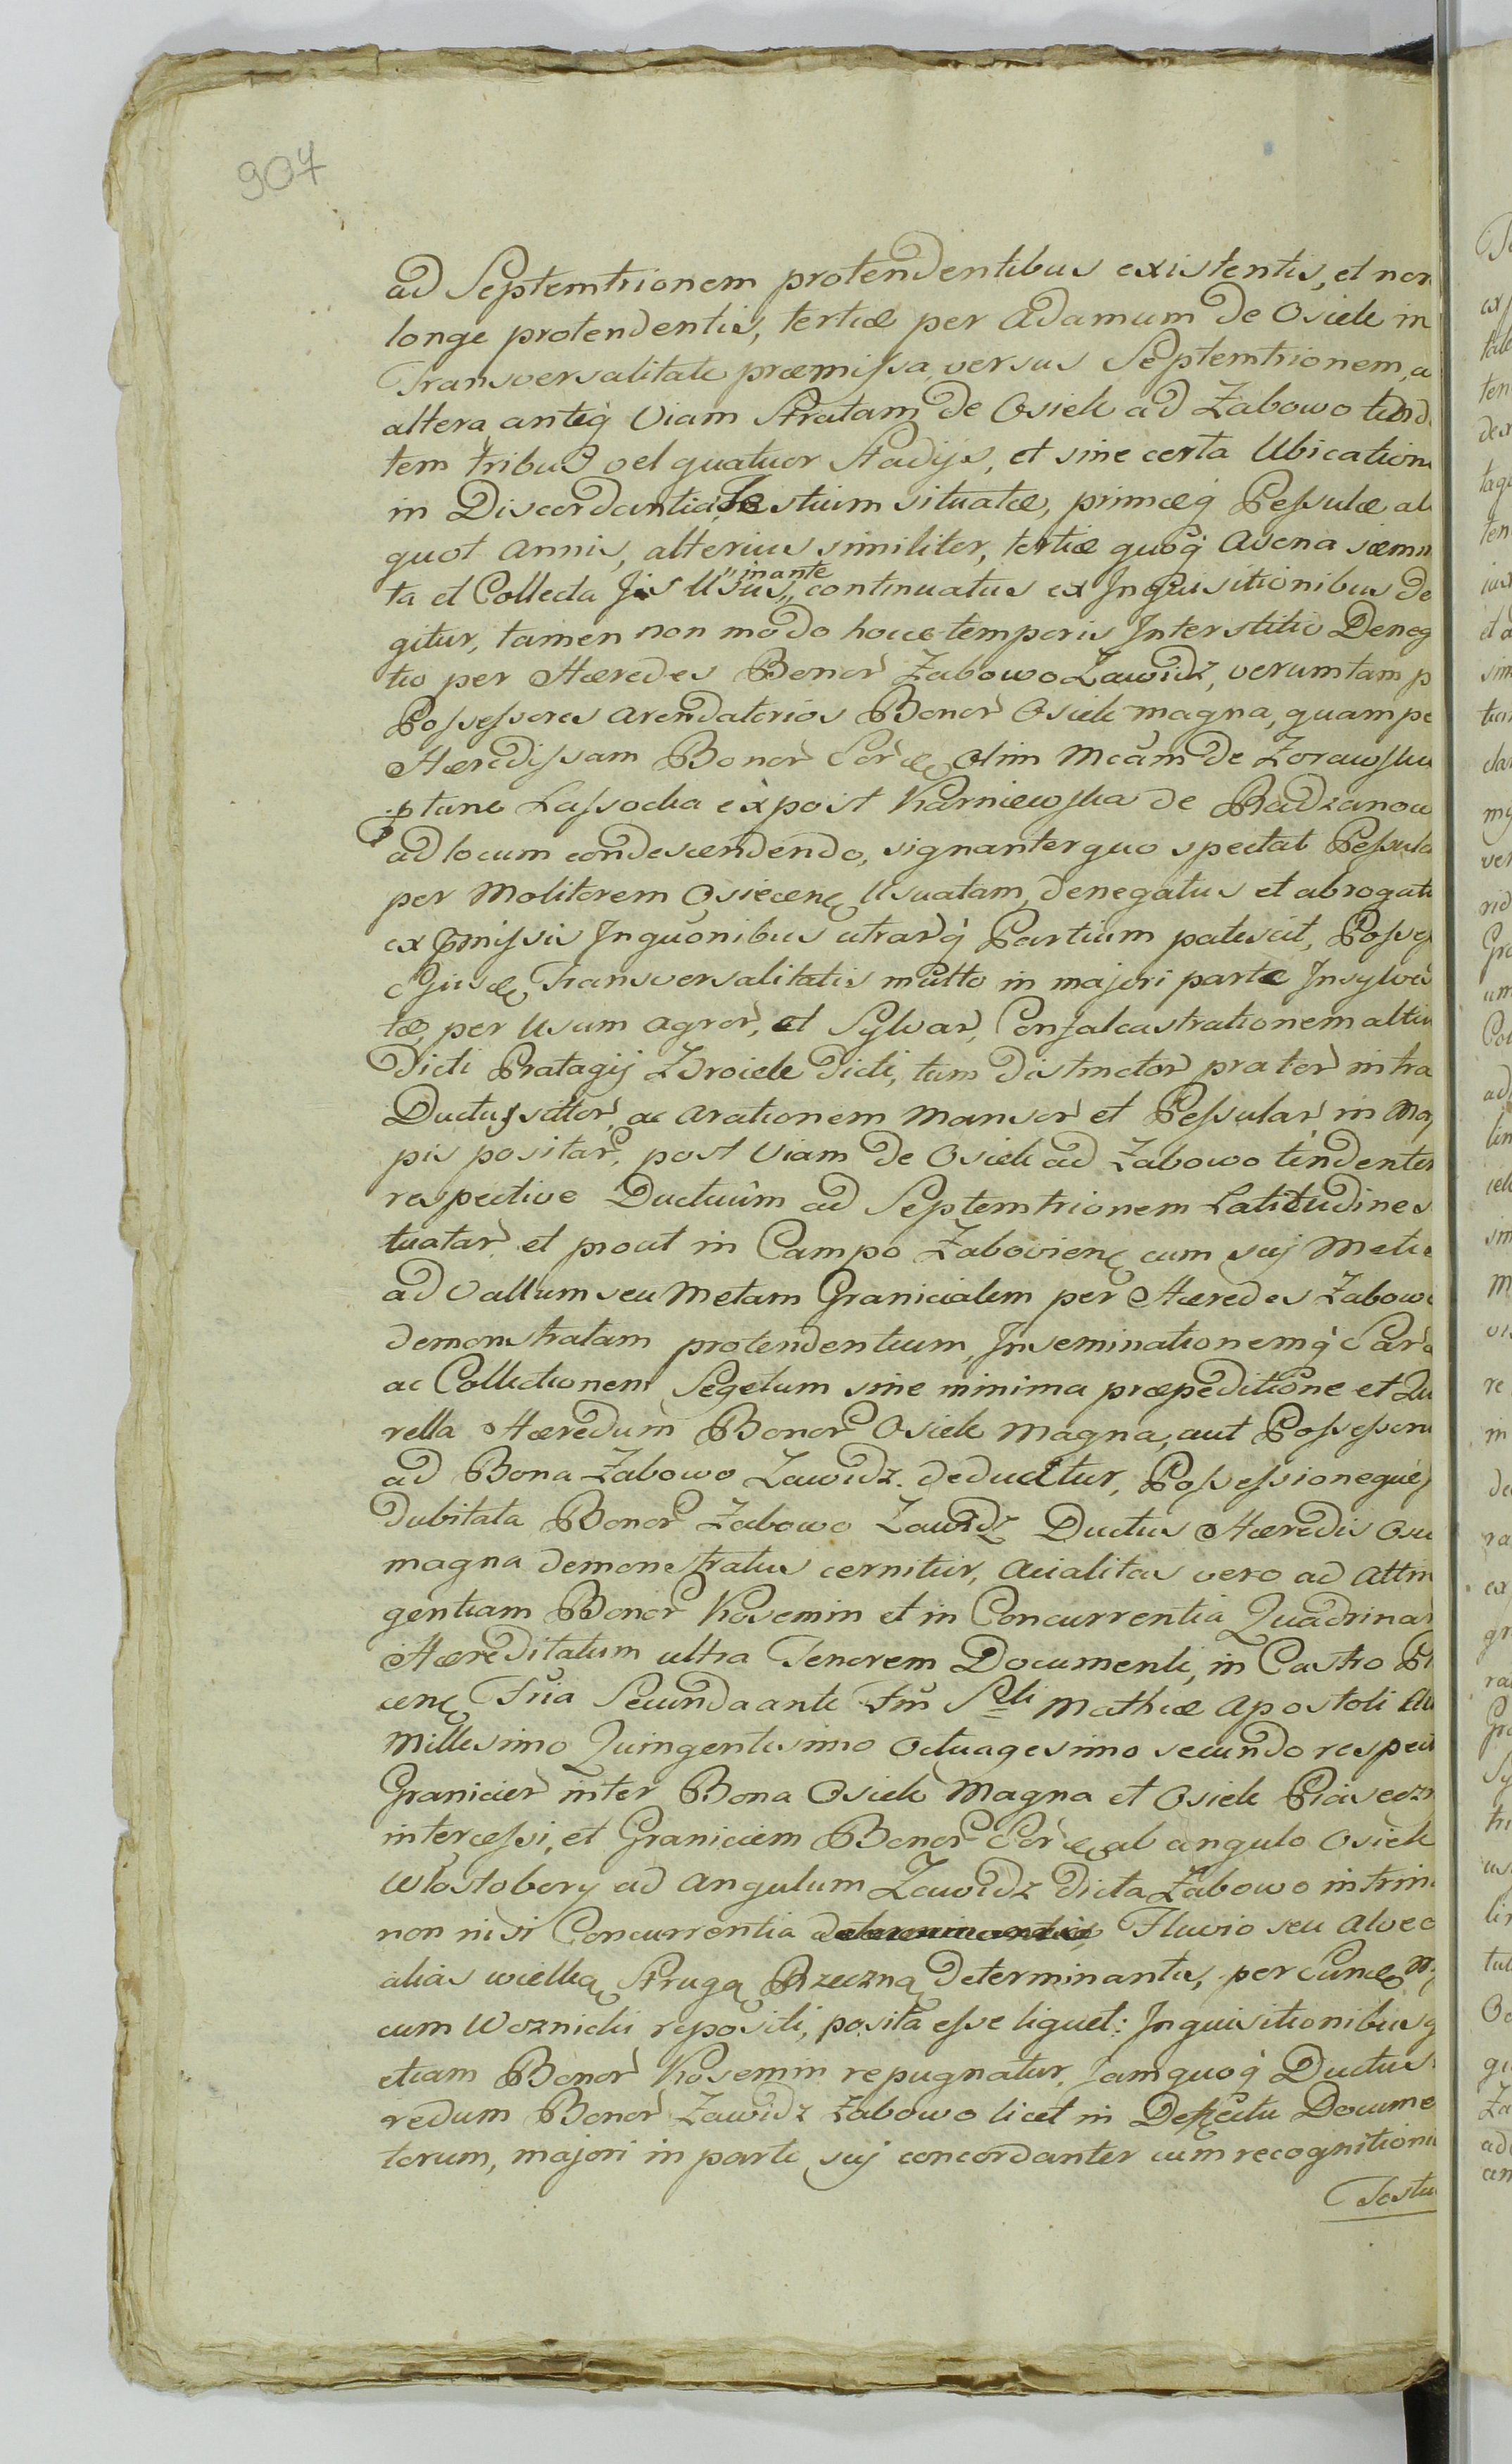 907
ad Septemtrionem protendentibus existentis, et non
longe protendentis, tertiæ per Adamum de Osiek in
Transversalitate præmissa versus Septemtrionem, a
altera anteq̀ Viam Stratam de Osiek ad Żabowo tend
tem tribus vel quatuor Stadijs, et sine certa Ubication
in Discordantia Testium situatæ, primæq̀ Pessulæ al
quot Annis, alterius similiter, tertiæ quoq̀ Avena sæmin
ta et Collecta Jis Usus "inante" continuatus ex Inquisitionibus de
gitur, tamen non modo hocce temporis Interstitio Deneg
tio per Hæredes Bonor̀ Żabowo Zawidz, verum tam p
Possessores Arendatorios Bonor̀ Osiek magna, quam pe
Hæredissam Bonor̀ olim Mcam de
ptunc Lassocka expost Karniewska de Badzanow
ad locum condescendendo, signanter quo spectat Pessula
per Molitorem Osiecenę Usuatam, denegatus et abrogatu
ex pmissis Inquonibus utrarq̀ Partium patescit, Posses
Transversalitatis multo in majori parte Insylves
tæ, per Usum Agror̀, et Sylvar̀, Confalcastrationem altiu
Dicti Pratagij Zdroiek dicti, tum distinctor̀ prator̀ intra
Ductus sitor̀, ac Arationem Mansor̀ et Pessular̀ in Map
pis positar̀, post Viam de Osiek ad Żabowo tendentem
respective Ductuum ad Septemtrionem Latitudines
tuatar̀ et prout in Campo Żabovienę cum suj Metis
ad Vallum seu Metam Granicialem per Hæredes Żabowo
demonstratam protendentium, Inseminationemq̀
ac Collectionem Segetum sine minima præpeditione et Qu
rella Hæredum Bonor̀ Osiek Magna, aut Possessoru
ad Bona Żabowo Zawidz. deducitur, Possessioneque
dubitata Bonor̀ Żabowo Zawidz Ductus Hæredis Osie
magna demonstratus cernitur, Acialitas vero ad Attin
gentiam Bonor̀ Kosemin et in Concurrentia Quadrinar̀
Hæreditatum ultra Tenorem Documenti, in Castro Pl
cenę Fria Secunda ante Ftm Sti Mathiæ Apostoli An
Millesimo Quingentesimo Octuagesimo secundo respect
Granicier̀ inter Bona Osiek Magna et Osiek Piaseczn
intercessi, et Graniciem Bonor̀ ab angulo Osiek
Włostobory ad Angulum Zawidz dicta Żabowo intrin
non nisi Concurrentia Fluvio seu Alveo
alias wielką Strugą Rzeczną determinantis, per
cum Woznicki repositi, posita esse liquet: Inquisitionibusq
etiam Bonor̀ Kosemin repugnatur, Jamquoq̀ Ductus
redum Bonor̀ Zawidz Żabowo licet in Defectu Docume
torum, majori in parte suj concordanter cum recognitioni
Testiu